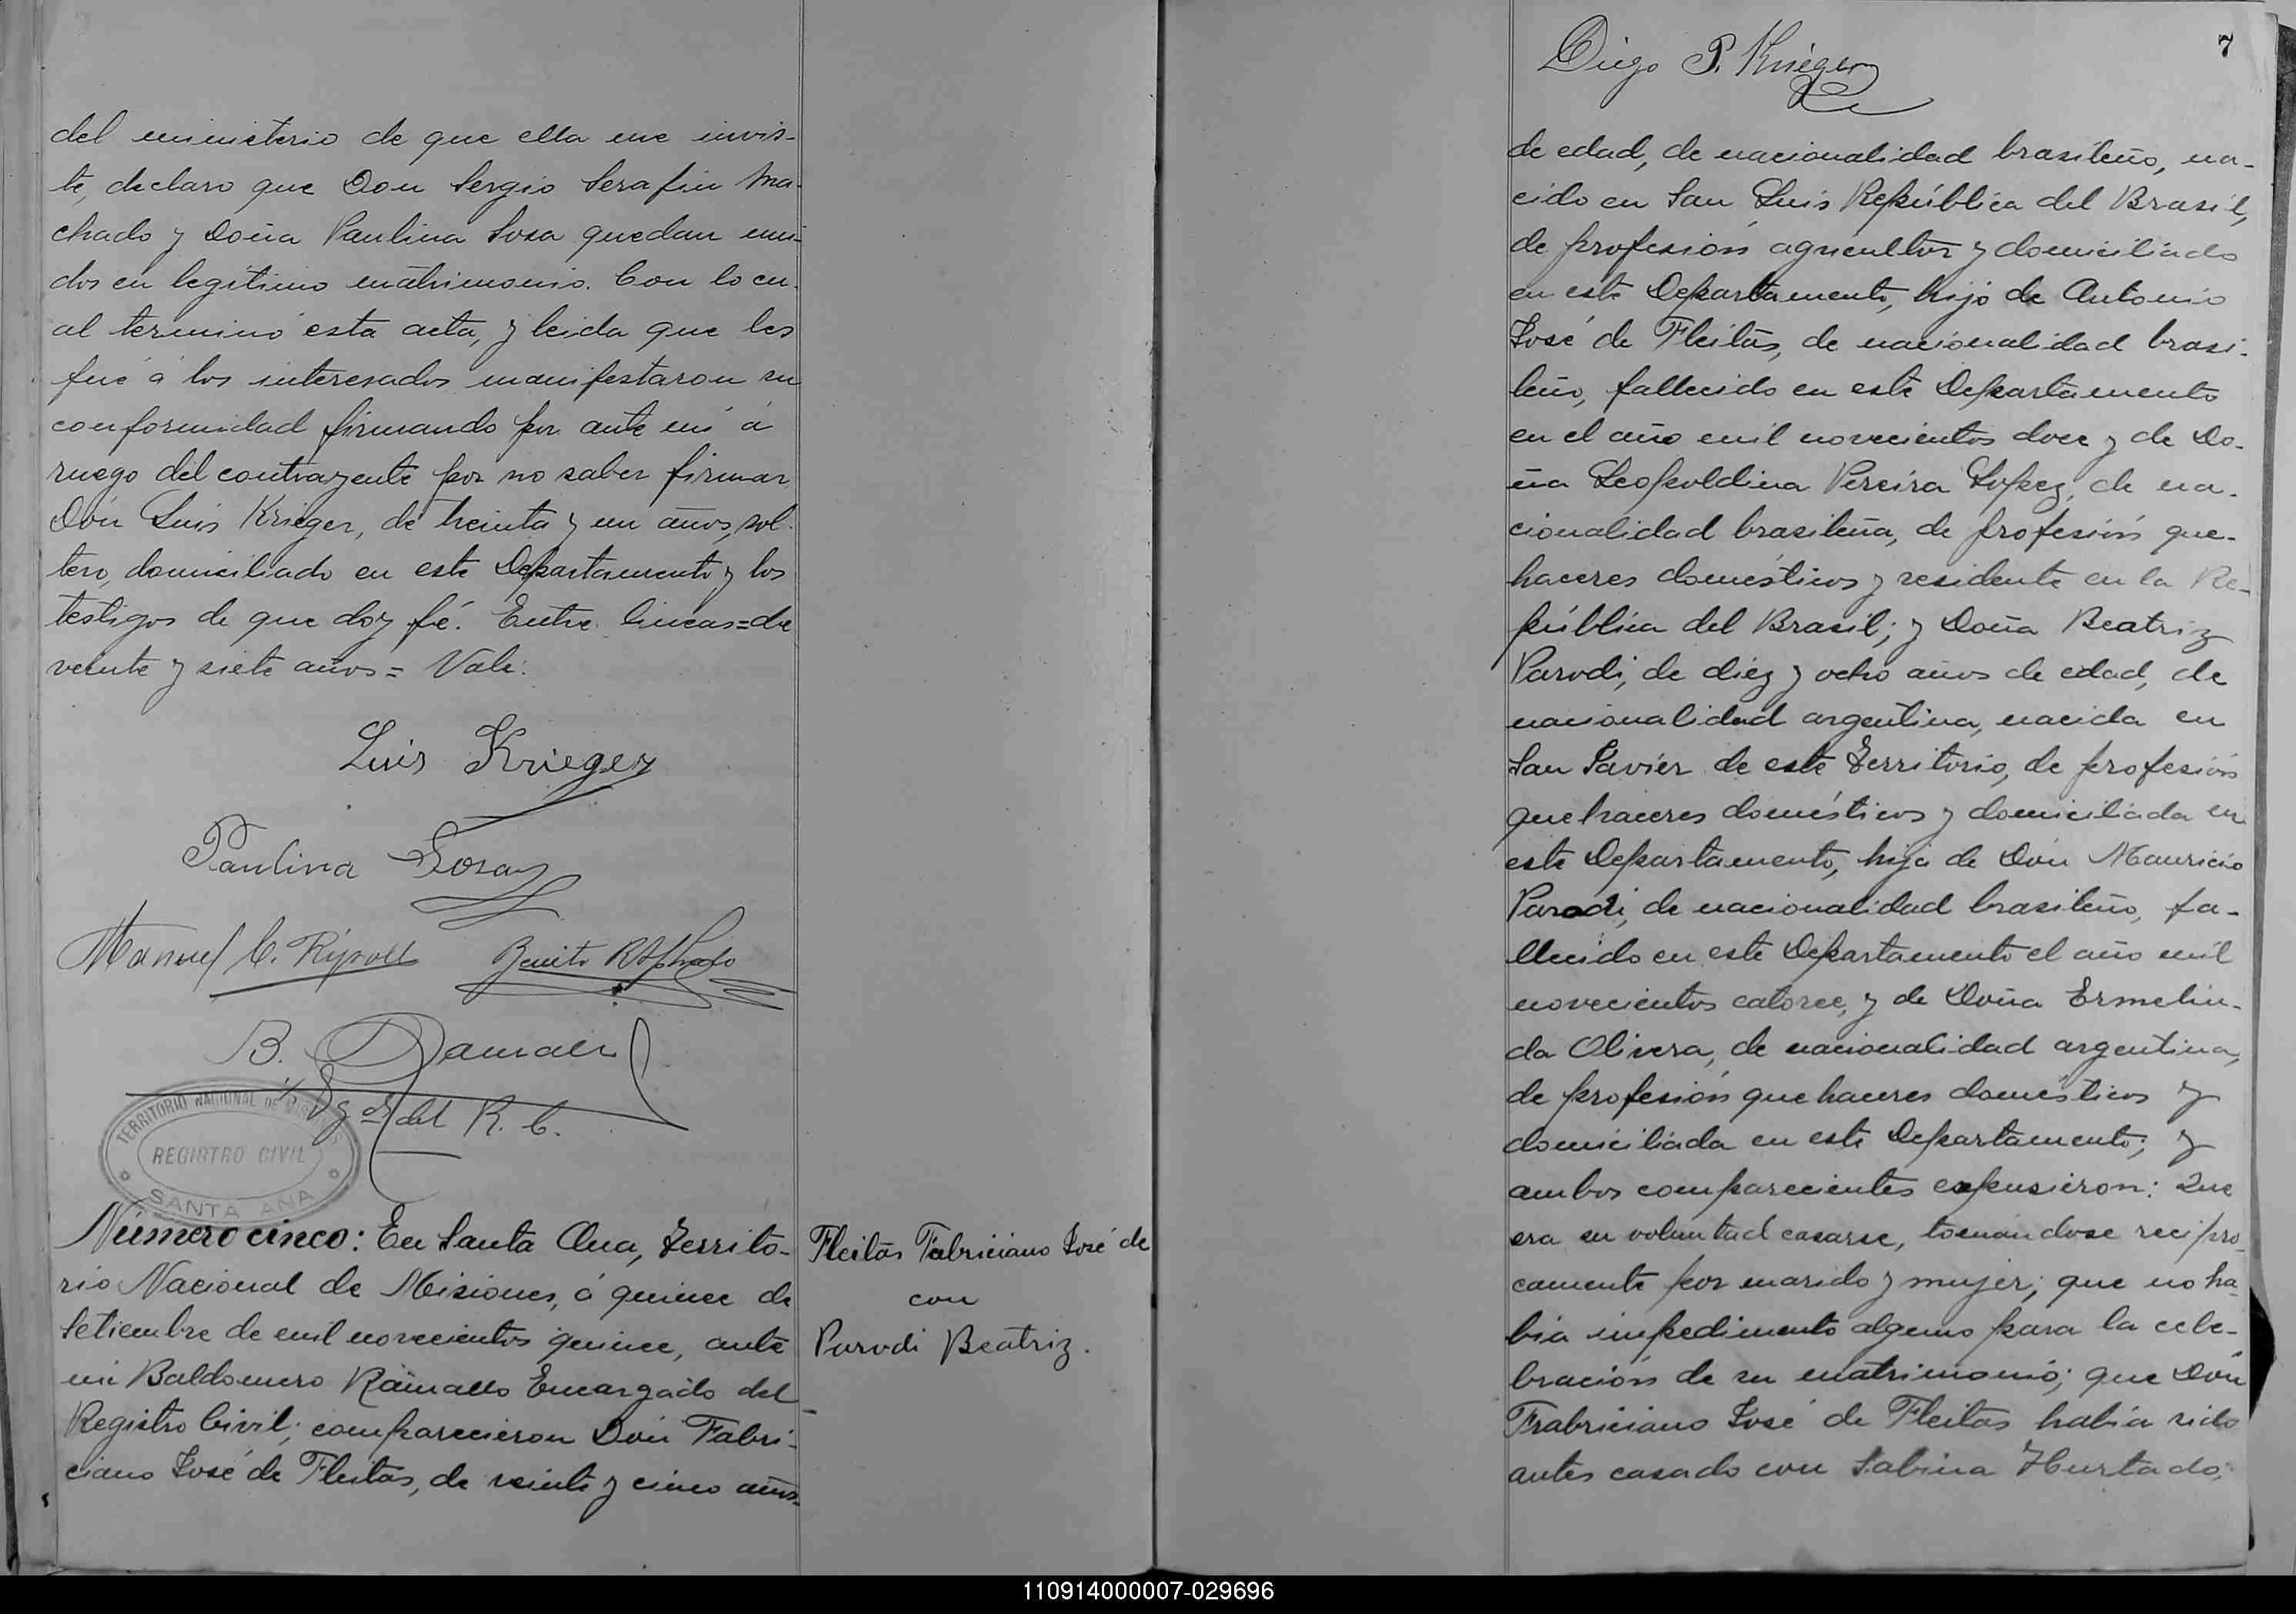 del ministerio de que ella me invis-
te, declaro que Don Sergio Serafin Ma-
chado y Doña Paulina Sosa quedan uni-
dos en legítimo matrimonio. Con lo cu-
al terminó esta acta, y leida que les
fué á los interesados manifestaron su
conformidad firmando por ante mí á
ruego del contrayente por no saber firmar
Don Luis Krieger, de treinta y un años, sol-
tero, domiciliado en este Departamento y los
testigos de que doy fé. Entre lineas=de
veinte y siete años= Vale.
Luis Krieger
Paulina Sosa
Manuel C. Ripoll
Benito
B. Ramallo
del R. C.
TERRITORIO NACIONAL DE MISIONES
REGISTRO CIVIL
SANTA ANA
Número cinco: En Santa Ana, Territo-
rio Nacional de Misiones, á quince de
Setiembre de mil novecientos quince, ante
mi Baldomero Ramallo Encargado del
Registro Civil; comparecieron Don Fabri-
ciano José de Fleitas, de veinte y cinco años
Fleitas Fabriciano José de
con
Parodi Beatriz.
Diego P. Krieger
7
de edad, de nacionalidad brasileño, na-
cido en San Luis República del Brasil,
de profesión agricultor y domiciliado
en este Departamento, hijo de Antonio
José de Fleitas, de nacionalidad brasi-
leño, fallecido en este Departamento
en el año mil novecientos doce y de Do-
ña Leopoldina Pereira Lopez, de na-
cionalidad brasileña, de profesión que-
haceres domésticos y residente en la Re-
pública del Brasil; y Doña Beatriz
Parodi, de diez y ocho años de edad, de
nacionalidad argentina, nacida en
San Javier de este Territorio, de profesión
quehaceres domésticos y domiciliada en
este Departamento, hija de Don Mauricio
Parodi, de nacionalidad brasileño, fa-
llecido en este Departamento el año mil
novecientos catorce, y de Doña Ermelin-
da Olivera, de nacionalidad argentina,
de profesión quehaceres domésticos y
domiciliada en este Departamento; y
ambos comparecientes expusieron: Que
era su voluntad casarse, tomandose recipro-
camente por marido y mujer; que no ha-
bia impedimento alguno para la cele-
bración de su matrimonio; que Don
Frabriciano José de Fleitas habia sido
antes casado con Sabina Hurtado;
110914000007-029696